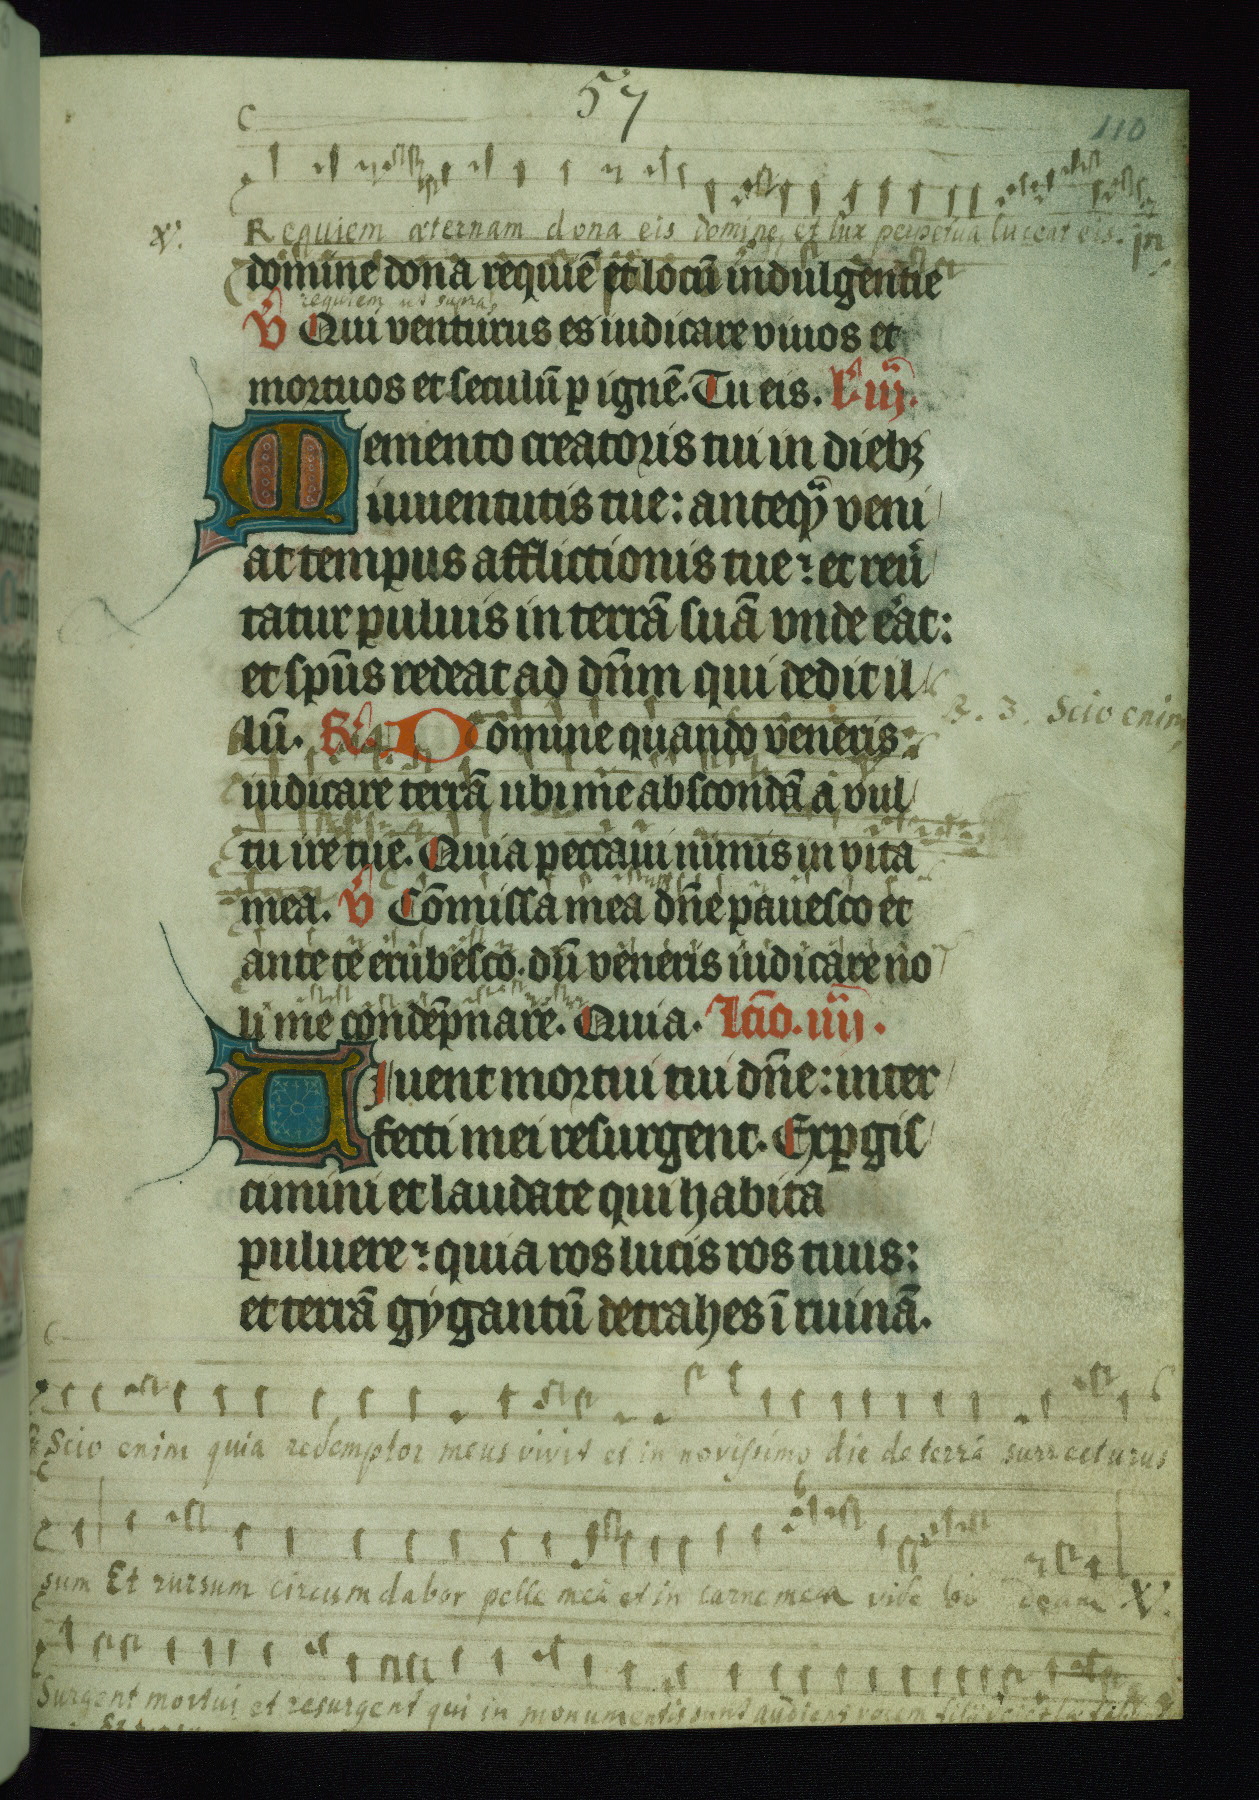 57
110
℣. Requiem æternam dona eis domine, et lux perpetua luceat eis.
domine dona requiē et locū indulgentie
requiem ut supra
℣ Qui venturus es iudicare viuos et
mortuos et seculū p ignē. Tu eis. lc̄ iij.
Memento creatoris tui in dieb3
iuuentutis tue: anteq̄ veni
at tempus afflictionis tue: et reū
tatur puluis in terrā suā vnde erat:
et sp̄us redeat ad dn̄m qui dedit il
lū. R. Domine quando veneris
R. 3. Scio enim
iudicare terrā ubi me abscondā a vul
tu ire tue. Quia peccaui nimis in vita
mea. ℣ Cōmissa mea dn̄e pauesco et
ante te erubesco. dū veneris iudicare no
li me condēpnare. Quia. Lc̄io. iiij.
Uiuent mortui tui dn̄e: inter
fecti mei resurgent. Expgis
cimini et laudate qui habita
puluere: quia ros lucis ros tuus:
et terrā gygantū detrahes ī ruinā.
Scio enim quia redemptor meus vivit et in novissimo die de terrâ surrecturus
sum Et rursum circumdabor pelle meâ et in carne mea vide bo deum ℣.
Surgent mortui et resurgent qui in monumentis sunt audient vocem filii